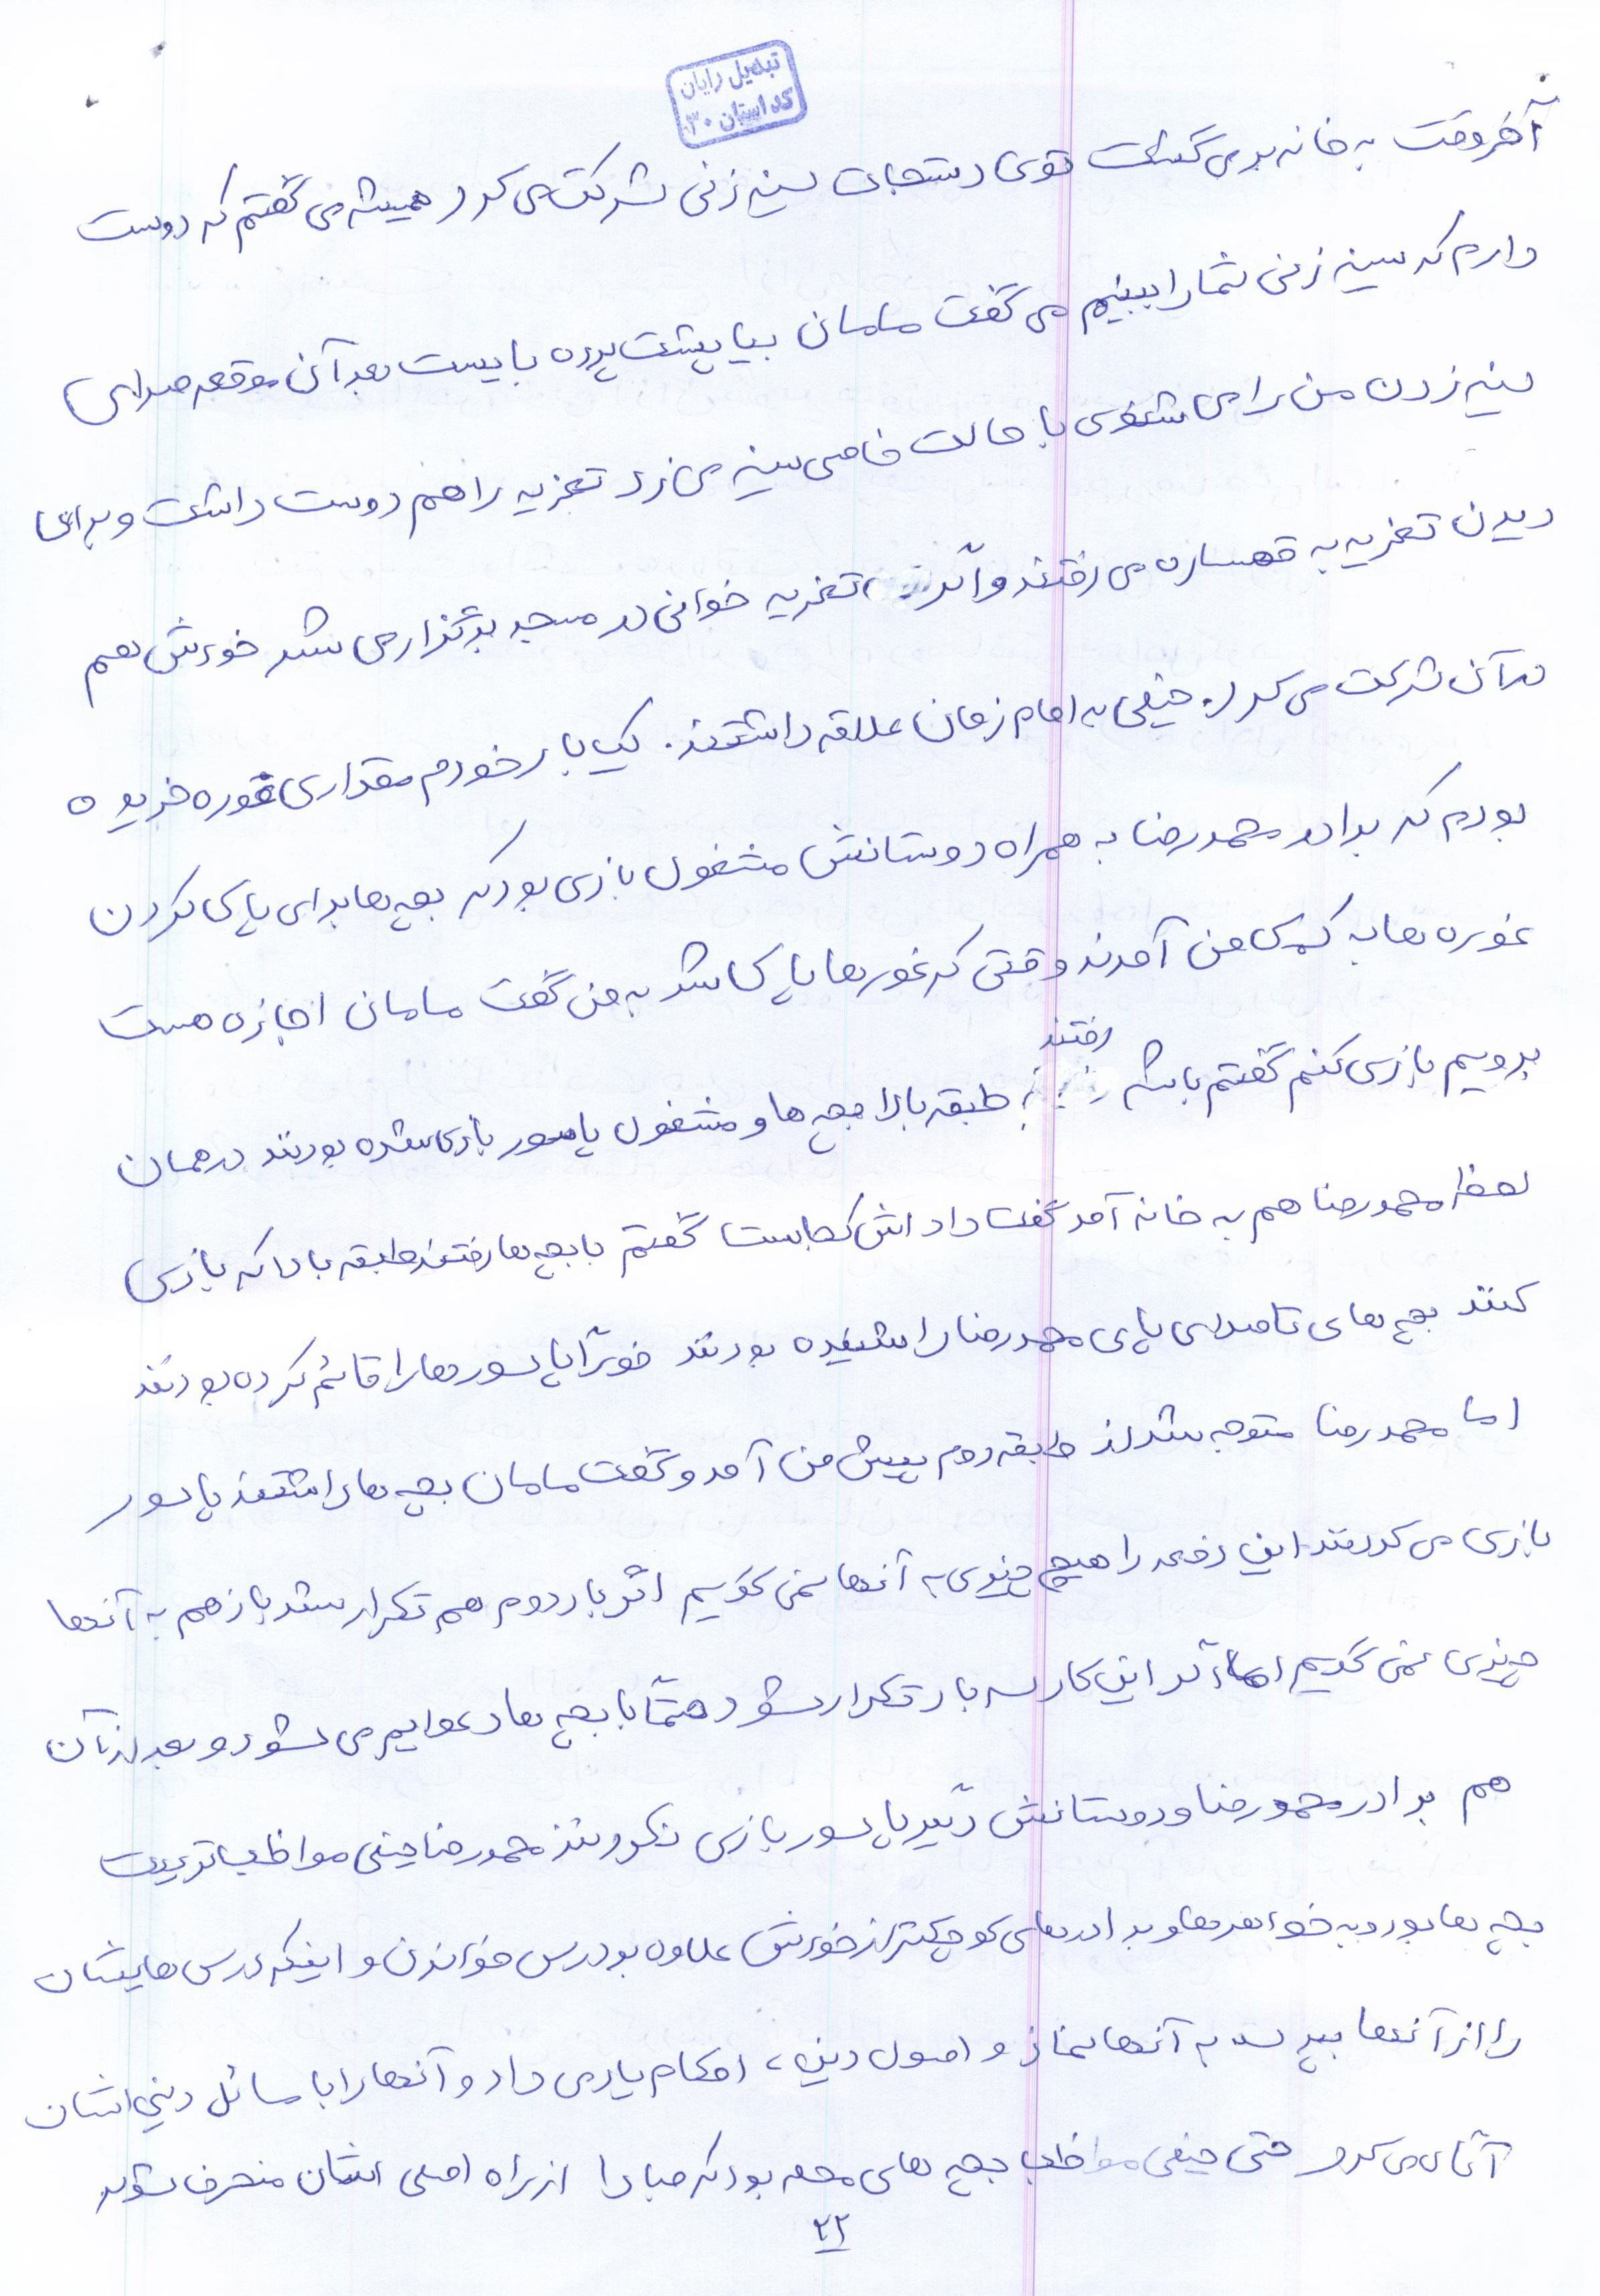 تبدیل رایان
کد استان ۳۰
آخر وقت به خانه برمی گشت توی دستجات سینه زنی شرکت می کرد همیشه می گفتم که دوست
دارم که سینه زنی شما را ببینیم می گفت مامان بیا پشت پرده بایست بعد آن موقعه صدای
سینه زدن من را می شنوی با حالت خاصی سینه می زد تعزیه را هم دوست داشت و برای
دیدن تعزیه به قهساره می رفتند و اگر تعزیه خوانی در مسجد برگذار می شد خودش هم
در آن شرکت می کرد. خیلی به امام زمان علاقه داشتند. یک بار خودم مقداری غوره خریده
بودم که برادر محمدرضا به همراه دوستانش مشغول بازی بود که بچه ها برای پاک کردن
غوره ها به کمک من آمدند وقتی که غورها پاک شد به من گفت مامان اجازه هست
برویم بازی کنم گفتم باشه رفتند طبقه بالا بچه ها و مشغول پاسور بازی شده بودند در همان
لحظه محمدرضا هم به خانه آمد گفت داداش کجاست گفتم با بچه ها رفتند طبقه بالا که بازی
کنند بچه های تا صدای پای محمدرضا را شنیده بودند فوراً پاسورها را قائم کرده بودند
اما محمدرضا متوجه شد از طبقه دوم پیش من آمد و گفت مامان بچه ها داشتند پاسور
بازی می کردند این دفعه را هیچ چیزی به آنها نمی گویم اگر بار دوم هم تکرار شد باز هم به آنها
چیزی نمی گویم اما اگر این کار سه بار تکرار شود حتماً با بچه ها دعوایم می شود و بعد از آن
هم برادر محمدرضا و دوستانش دیگر پاسور بازی نکردند محمدرضا خیلی مواظب تربیت
بچه ها بود و به خواهرها و برادرهای کوچکتر از خودش علاوه بر درس خواندن و اینکه درس هایشان
را از آنها بپرسد به آنها نماز و اصول دین، احکام یاد می داد و آنها را با مسائل دینی اشان
آشنا می کرد حتی خیلی مواظب بچه های محله بود که مبادا از راه اصلی اشان منحرف شوند
۲۲